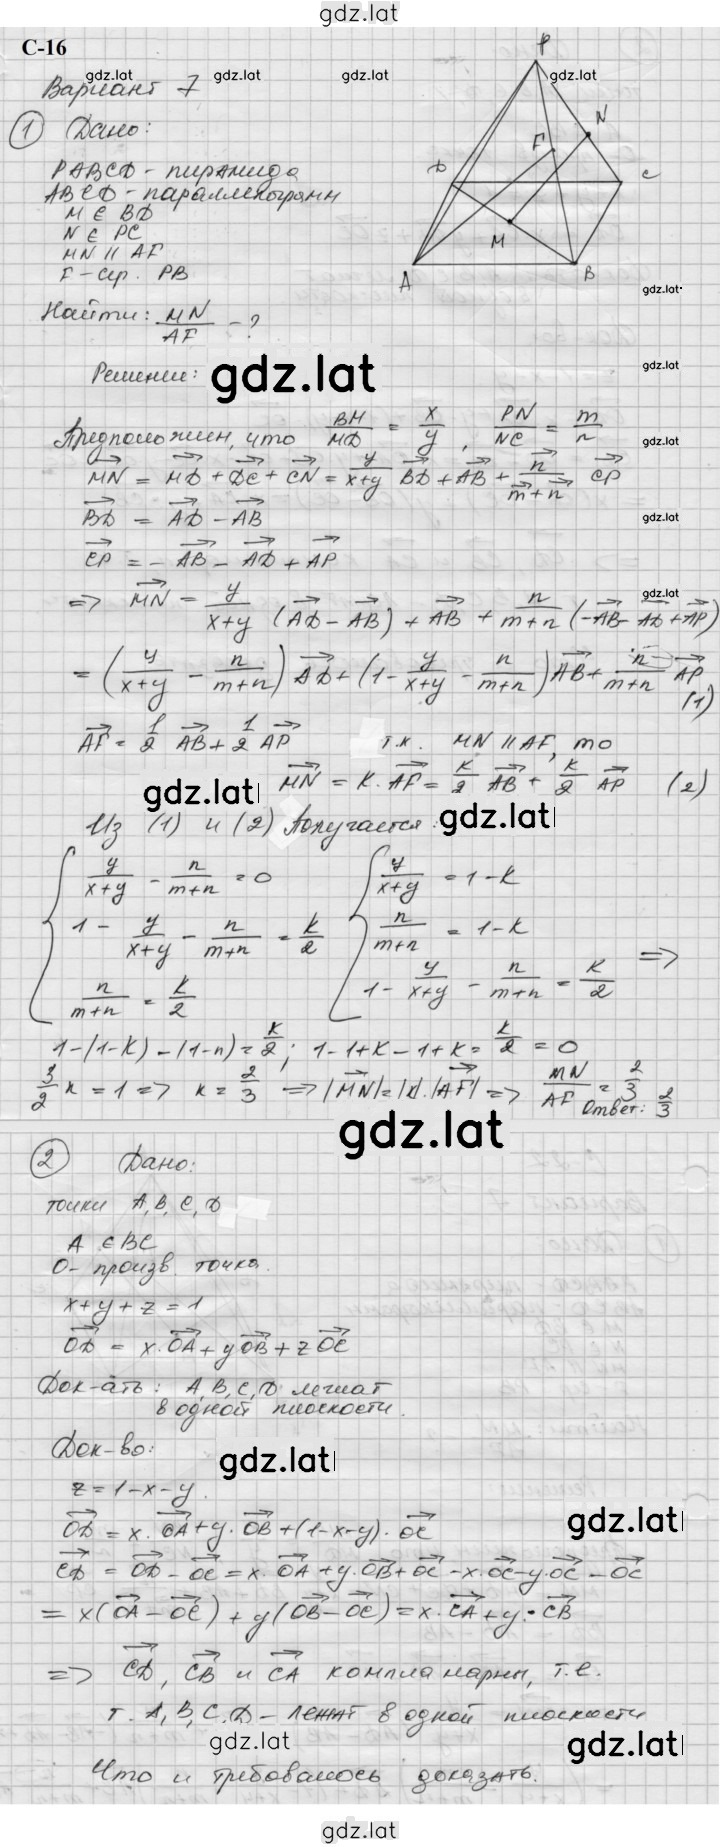 gdz.lat
С-16
gdz.lat gdz.lat gdz.lat
Вариант 7
P
① Дано:
N
F
D
C
M
A
B
PABCD - пирамида
ABCD - параллелограмм
M ∈ BD
N ∈ PC
MN ∥ AF
F - сер. PB
gdz.lat
Найти: MN/AF - ?
gdz.lat
Решение:
gdz.lat
Предположим, что BM/MD = x/y, PN/NC = m/n
gdz.lat
MN→ = MD→ + DC→ + CN→ = y/(x+y) BD→ + AB→ + n/(m+n) CP→
BD→ = AD→ - AB→
gdz.lat
CP→ = - AB→ - AD→ + AP→
gdz.lat
=> MN→ = y/(x+y) (AD→ - AB→) + AB→ + n/(m+n) (-AB→ - AD→ + AP→)
= (y/(x+y) - n/(m+n)) AD→ + (1 - y/(x+y) - n/(m+n)) AB→ + n/(m+n) AP→ (1)
AF→ = 1/2 AB→ + 1/2 AP→ т.к. MN ∥ AF, то
MN→ = k · AF→ = k/2 AB→ + k/2 AP→ (2)
gdz.lat
Из (1) и (2) получается:
gdz.lat
{ y/(x+y) - n/(m+n) = 0 { y/(x+y) = 1 - k
1 - y/(x+y) - n/(m+n) = k/2 n/(m+n) = 1 - k =>
n/(m+n) = k/2 1 - y/(x+y) - n/(m+n) = k/2
1-(1-k)-(1-n) = k/2; 1-1+k-1+k = k/2 = 0
3/2 k = 1 => k = 2/3 => |MN→| = |k|·|AF→| => MN/AF = 2/3
Ответ: 2/3
gdz.lat
② Дано:
точки A, B, C, D
A ∈ BC
O - произв. точка.
x + y + z = 1
OD→ = x·OA→ + yOB→ + zOC→
Док-ать: A, B, C, D лежат
в одной плоскости.
Док-во:
gdz.lat
z = 1 - x - y.
gdz.lat
OD→ = x·CA→ + y·OB→ + (1-x-y)·OC→
CD→ = OD→ - OC→ = x·OA→ + y·OB→ + OC→ - x·OC→ - y·OC→ - OC→
= x(OA→ - OC→) + y(OB→ - OC→) = x·CA→ + y·CB→
=> CD→, CB→ и CA→ компланарны, т.е.
т. A, B, C, D - лежат в одной плоскости
gdz.lat
gdz.lat
Что и требовалось доказать.
gdz.lat